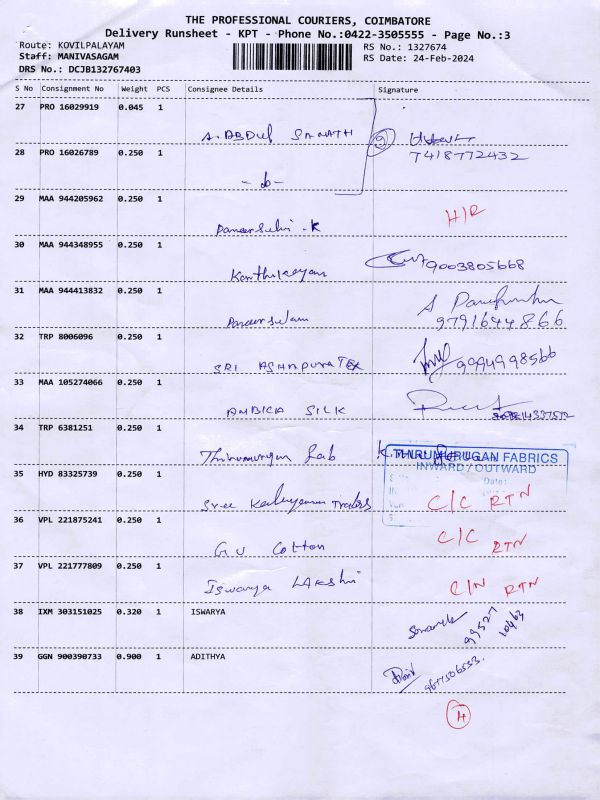 THE PROFESSIONAL COURIERS, COIMBATORE
Delivery Runsheet - KPT - Phone No.:0422-3505555 - Page No.:3
Route: KOVILPALAYAM
Staff: MANIVASAGAM
DRS No.: DCJB132767403
RS No.: 1327674
RS Date: 24-Feb-2024
S No Consignment No Weight PCS Consignee Details Signature
27 PRO 16029919 0.045 1
A. ABDUL SAMATH
28 PRO 16026789 0.250 1
7418772432
29 MAA 944205962 0.250 1
H/R
30 MAA 944348955 0.250 1
Karthikeyan 9003805668
31 MAA 944413832 0.250 1
9791644866
32 TRP 8006096 0.250 1
SRI ASHAPURA TEX 9994998566
33 MAA 105274066 0.250 1
AMBICA SILK
34 TRP 6381251 0.250 1
Thirumurugan Fab
THIRUMURUGAN FABRICS
INWARD / OUTWARD
Date:
35 HYD 83325739 0.250 1
Sree Traders C/C RTN
36 VPL 221875241 0.250 1
G.V Cotton C/C RTN
37 VPL 221777809 0.250 1
Iswarya C/N RTN
38 IXM 303151025 0.320 1 ISWARYA
99527 10463
39 GGN 900390733 0.900 1 ADITHYA
9677506553.